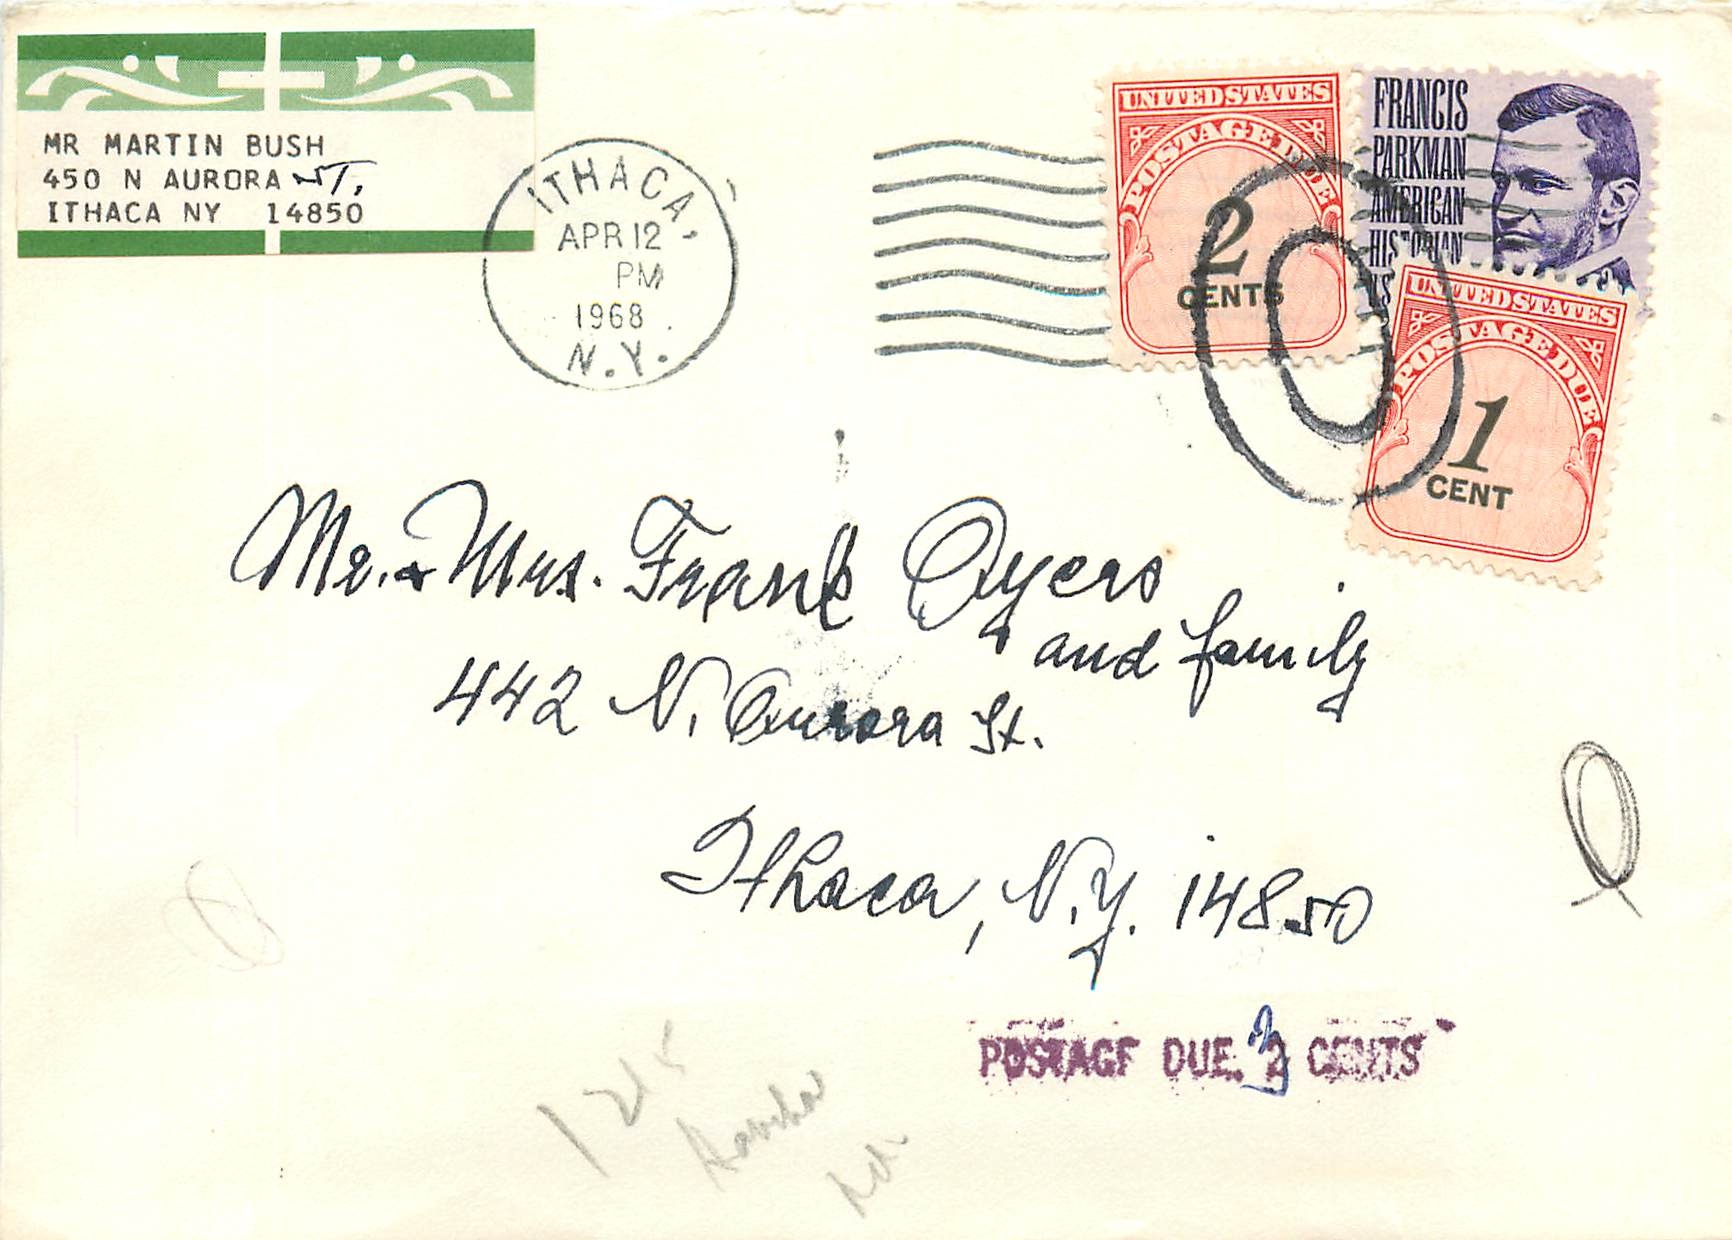 MR MARTIN BUSH
450 N AURORA ST.
ITHACA NY 14850
ITHACA,
APR 12
PM
1968
N.Y.
UNITED STATES
POSTAGE DUE
2
CENTS
FRANCIS
PARKMAN
AMERICAN
HISTORIAN
UNITED STATES
POSTAGE DUE
1
CENT
Mr. & Mrs. Frank Ayers
and family
442 N. Aurora St.
Ithaca, N.Y. 14850
POSTAGE DUE 3 CENTS